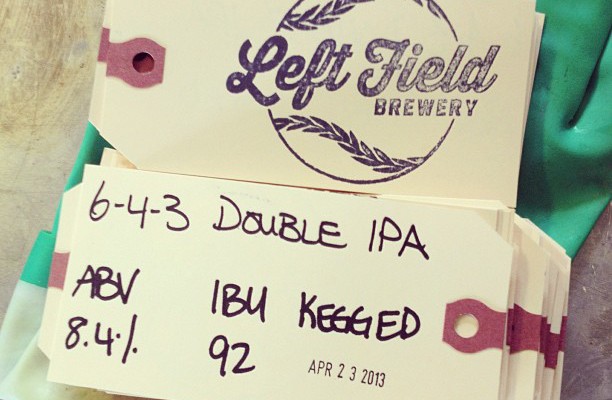 Left Field
BREWERY
6-4-3 DOUBLE IPA
ABV IBU KEGGED
8.4% 92 APR 23 2013